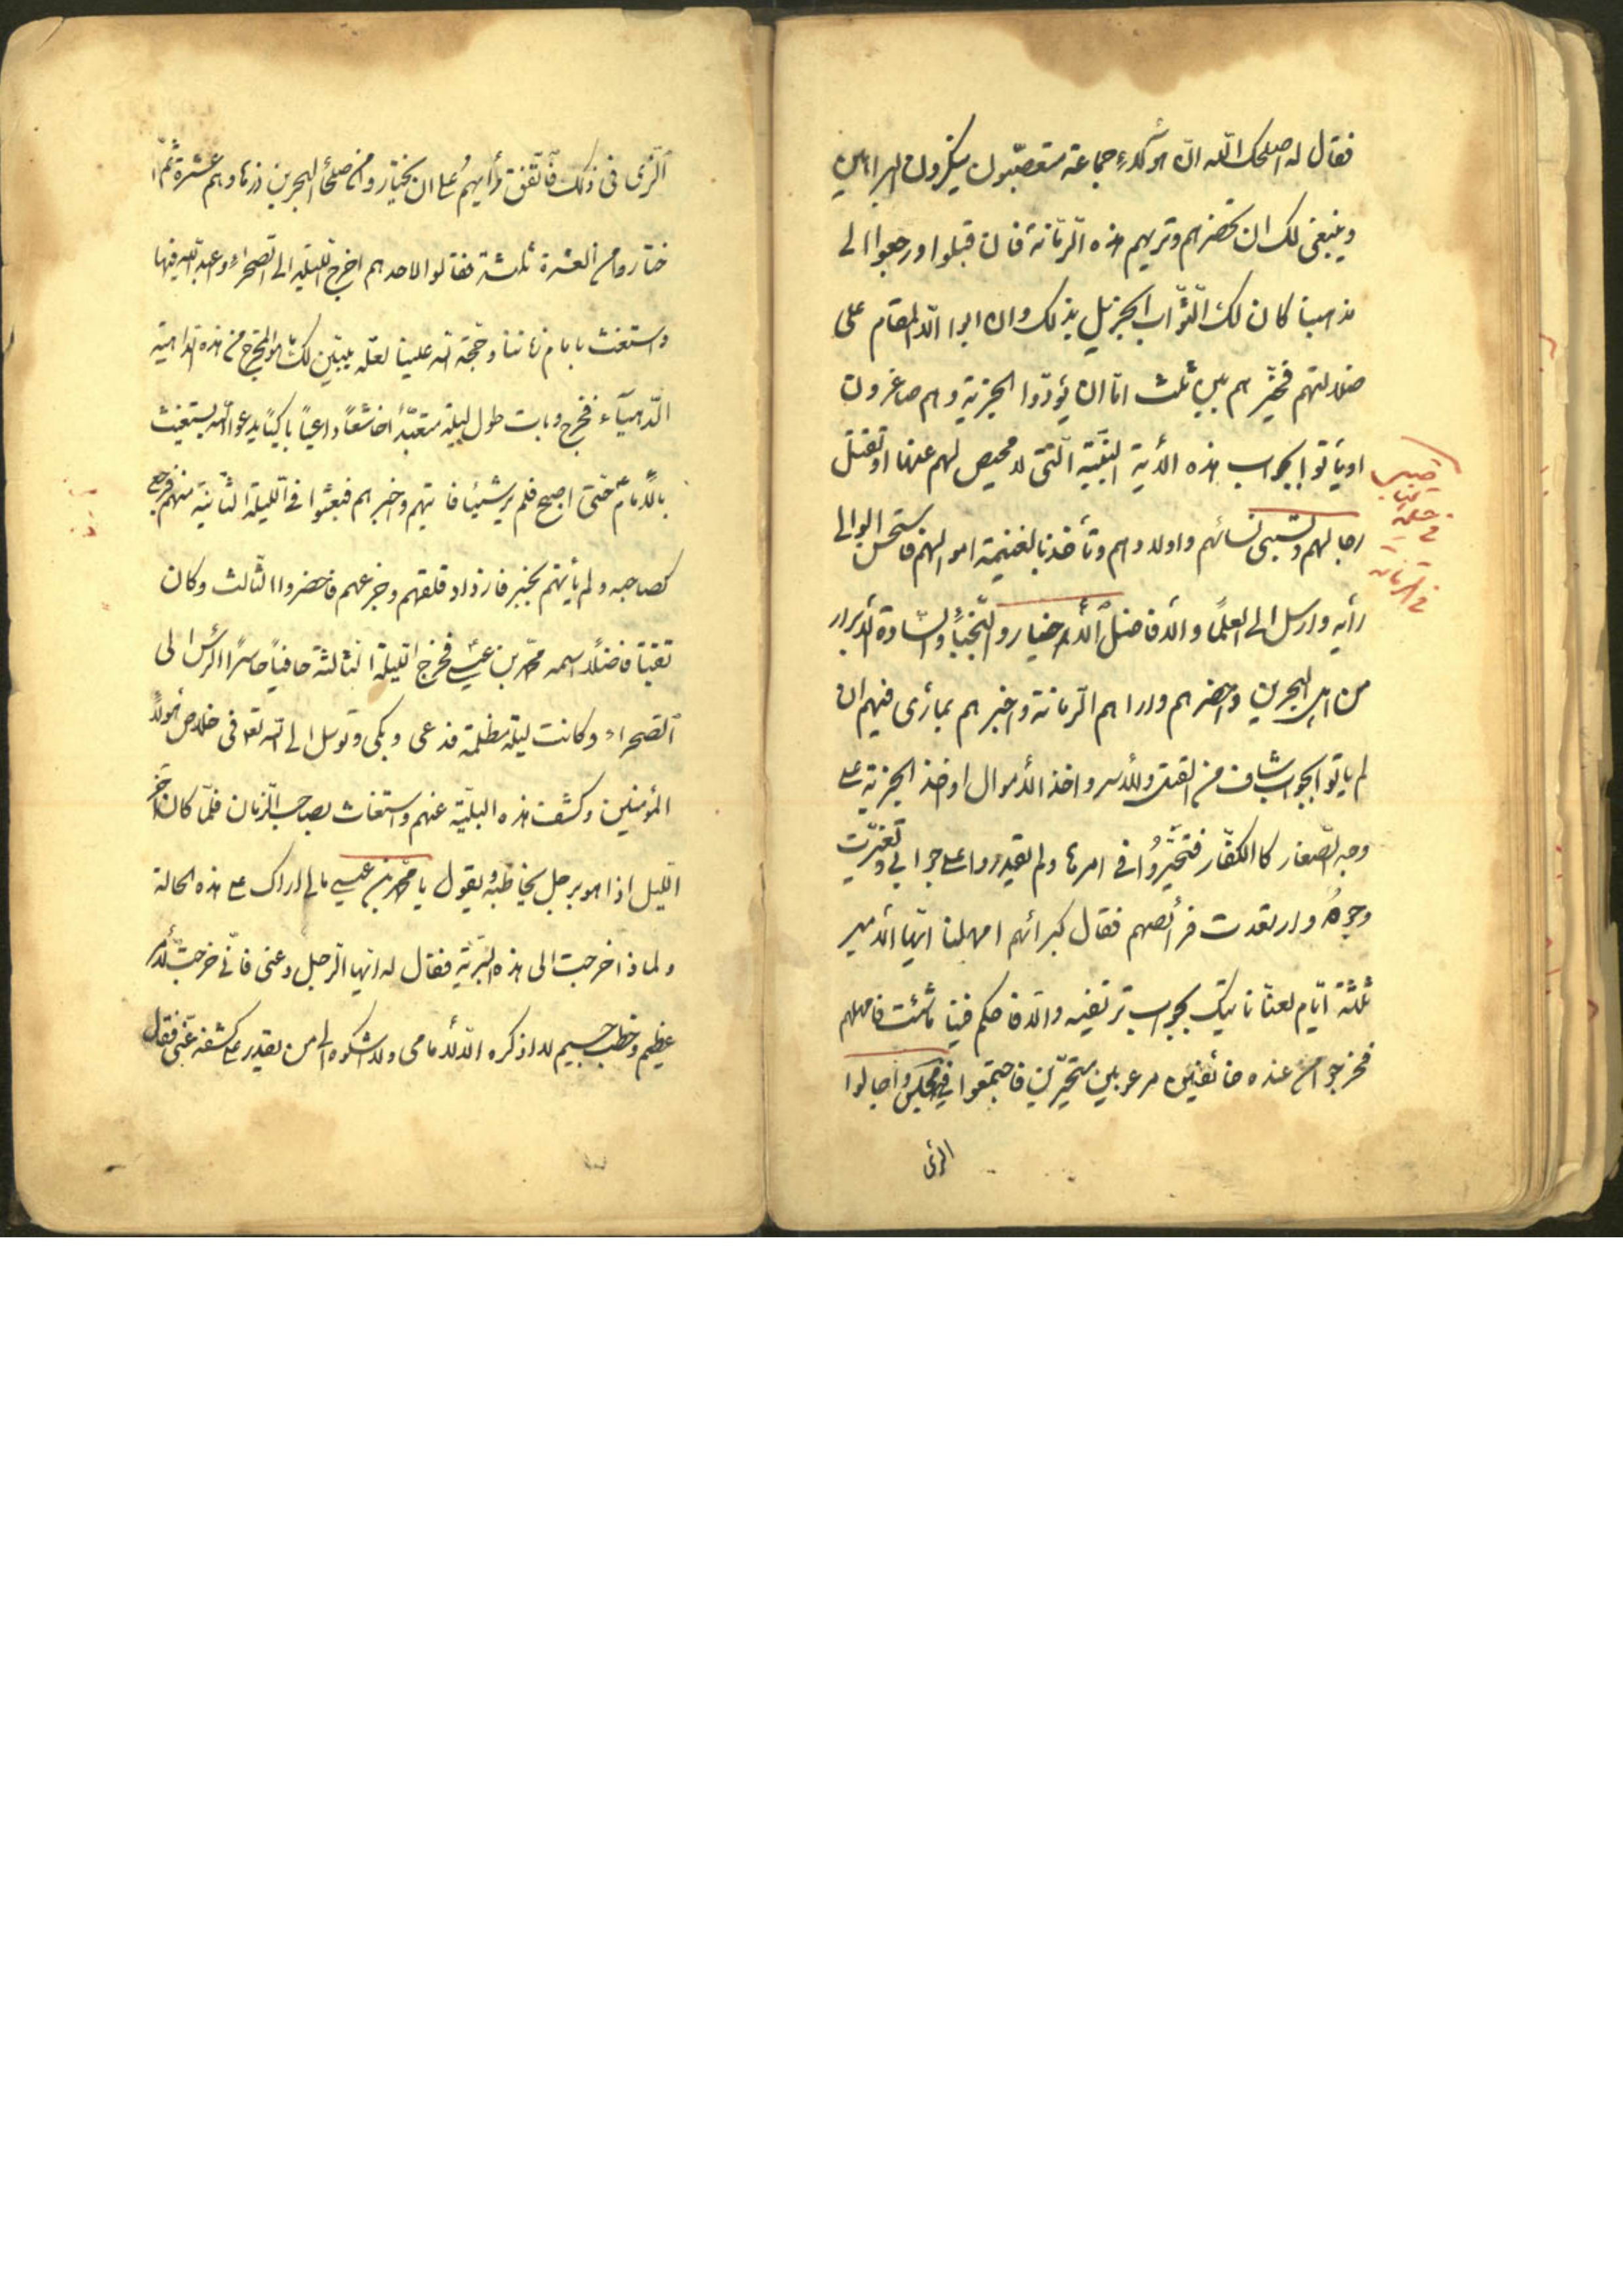 فقال له اصلحك الله ان هؤلاء جماعة متعصبون ينكرون البراهين
وينبغي لك ان تحضرهم وتريهم هذه الرمانة فان قبلوا ورجعوا الى
مذهبنا كان لك الثواب الجزيل بذلك وان ابوا الا المقام على
ضلالتهم فخيرهم بين ثلث اما ان يؤدوا الجزية وهم صاغرون
او يأتوا بجواب هذه الأية البينة التى لا محيص لهم عنها او تقتل
رجالهم وتسبى نسائهم واولادهم وتأخذ بالغنيمة اموالهم فاستحسن الوالى
رأيه وارسل الى العلمأ والأفاضل الأخيار والنجبأ والسادة الأبرار
من اهل البحرين واحضرهم وارا هم الرمانة واخبرهم بمارأى فيهم ان
لم ياتوا بجواب شاف من القتل والأسر واخذ الأموال او اخذ الجزية على
وجه الصغار كالكفار فتحيروا فى امرها ولم يقدروا على جواب وتغيرت
وجوههم وارتعدت فرائصهم فقال كبرائهم امهلنا ايها الأمير
ثلثة ايام لعلنا ناتيك بجواب ترتضيه والا فاحكم فينا ما شئت فامهلهم
فخرجوا من عنده خائفين مرعوبين متحيرين فاجتمعوا فى مجلس واجالوا
الرأى
فى
فى الرمانة
الرأى فى ذلك فاتفق رأيهم على ان يختاروا من صلحأ البحرين وزهادهم عشرة ثم ا
ختاروا من العشرة ثلثة فقالوا لاحدهم اخرج الليلة الى الصحراء واعبد الله فيها
واستغث بامام زماننا وحجة الله علينا لعله يبين لك ما هو المخرج من هذه الداهية
الدهيآء فخرج وبات طول ليلته متعبدا خاشعا داعيا باكيا يدعو الله ويستغيث
بالأمام ع حتى اصبح فلم ير شيئا فاتيهم واخبرهم فبعثوا فى الليلة الثانية منهم فرجع
كصاحبه ولم يأتهم بخبر فازداد قلقهم وجزعهم فاحضروا الثالث وكان
تقيا فاضلا اسمه محمد بن عيسى فخرج الليلة الثالثة حافيا حاسرا الرأس الى
الصحراء وكانت ليلة مظلمة فدعى وبكى وتوسل الى الله تع فى خلاص هؤلاء
المؤمنين وكشف هذه البلية عنهم واستغاث بصاحب الزمان فلما كان اخر
الليل اذا هو برجل يخاطبه ويقول يا محمد بن عيسى مالى اراك على هذه الحالة
ولماذا خرجت الى هذه البرية فقال له ايها الرجل دعنى فانى خرجت لأمر
عظيم وخطب جسيم لا اذكره الا لأمامى ولا اشكوه الا الى من يقدر على كشفه عنى فقال